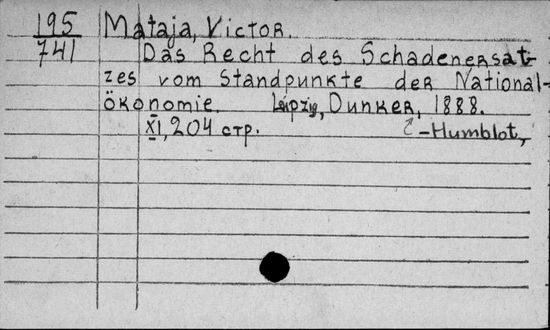 195 Mataja, Victor.
741 Das Recht des Schadenersat-
zes vom Standpunkte der National-
ökonomie. Leipzig, Dunker, 1888.
XI, 204 стр. -Humblot,